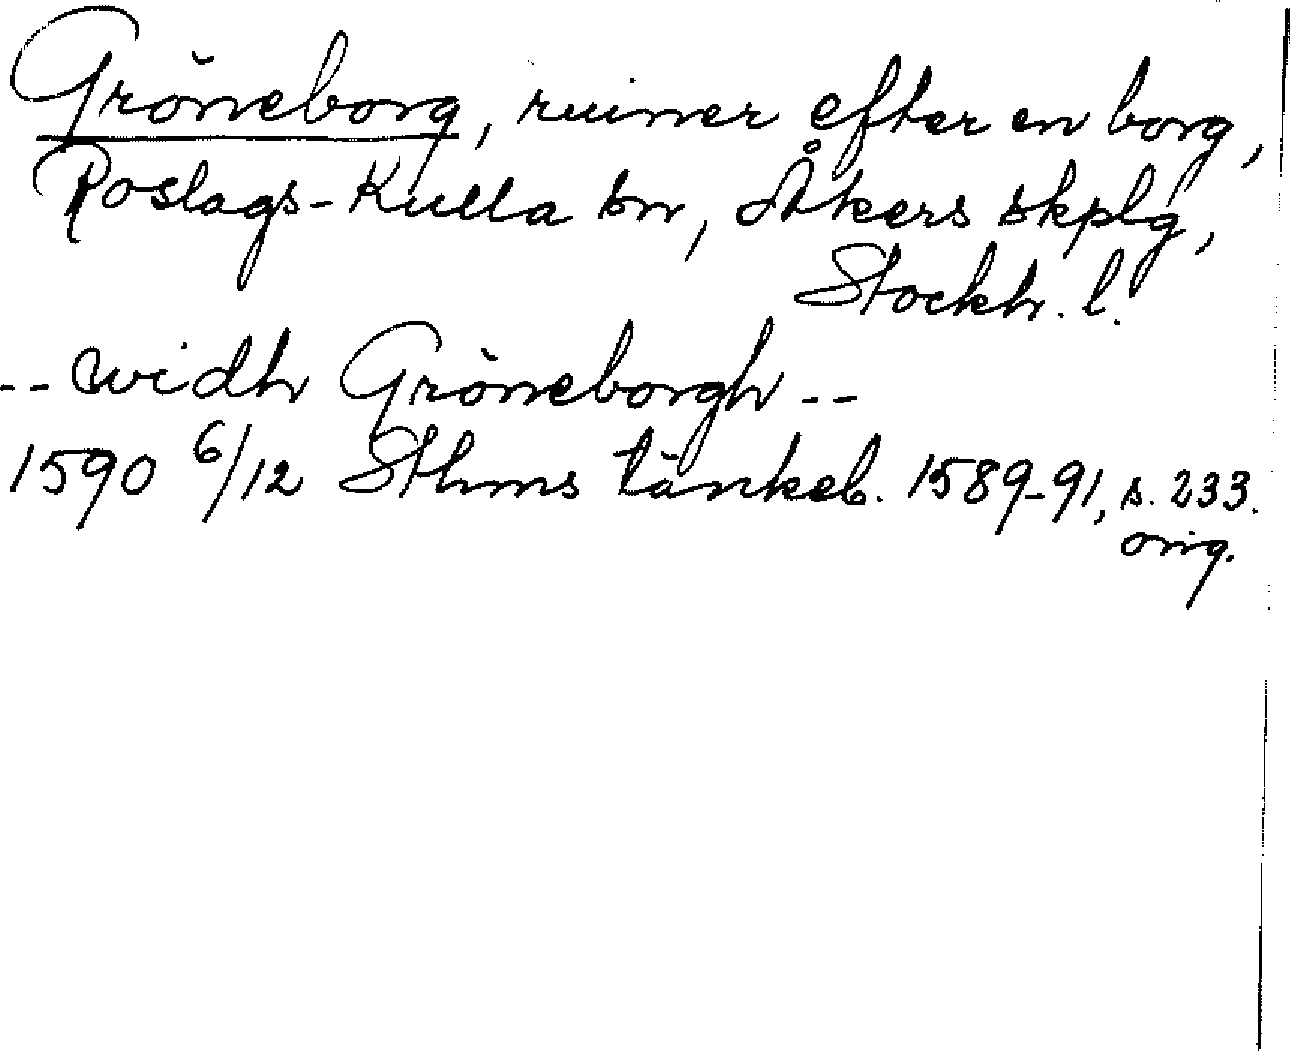 Gröneborg, ruiner efter en borg,
Roslags-Kulla sn, Åkers skplg,
Stockh. l.
-- widh Gröneborgh --
1590 6/12 Sthms tänkeb. 1589-91, s. 233.
orig.